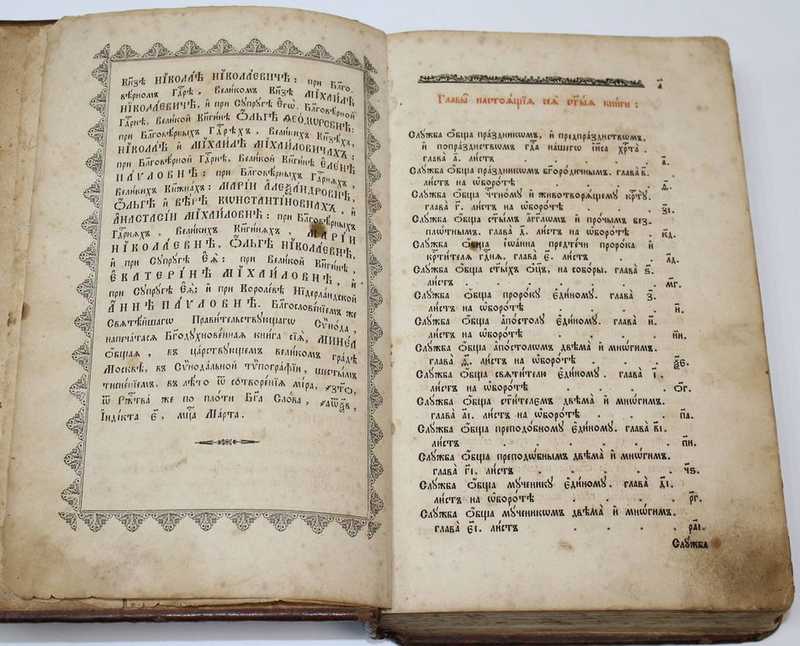 Кн҃зѣ Нїкола́ѣ Нїкола́евичѣ: при Бл҃го-
вѣ́рномъ Гдⷭ҇рѣ, Вели́комъ Кн҃зѣ Мїхаи́лѣ
Нїкола́евичѣ, и҆ при Супру́гѣ Є҆гѡ̀, Бл҃говѣ́рной
Гдⷭ҇рнѣ, Вели́кой Кн҃ги́нѣ Ѻ҆́льгѣ Ѳео́дѡровнѣ:
при Бл҃говѣ́рныхъ Гдⷭ҇рѣхъ, Вели́кихъ Кн҃зѣхъ,
Нїкола́и и҆ Мїхаи́лѣ Мїха́йловичахъ:
при Бл҃говѣ́рной Гдⷭ҇рнѣ, Вели́кой Кн҃ги́нѣ Є҆ле́нѣ
Па́ѵловнѣ: при Бл҃говѣ́рныхъ Гдⷭ҇рняхъ,
Вели́кихъ Кн҃жна́хъ: Марі́и А҆леѯа́ндровнѣ,
Ѻ҆́льгѣ и҆ Вѣ́рѣ Кѡнстанті́новнахъ, и҆
А҆настасі́и Мїха́йловнѣ: при Бл҃говѣ́рныхъ
Гдⷭ҇рняхъ, Вели́кихъ Кн҃ги́няхъ, Марі́и
Нїкола́евнѣ, Ѻ҆́льгѣ Нїкола́евнѣ,
и҆ при Супру́гѣ Є҆ѧ̀: при Вели́кой Кн҃ги́нѣ,
Є҆катери́нѣ Мїха́йловнѣ, и҆
при Супру́гѣ Є҆ѧ̀: и҆ при Короле́вѣ Нїдерла́ндской
А҆́ннѣ Па́ѵловнѣ. Бл҃гослове́нїемъ же
Свѧтѣ́йшагѡ Прави́тельствующагѡ Сѵно́да,
напеча́тасѧ Бг҃одухнове́ннаѧ кни́га сїѧ̀, Мине́а
ѻ҆́бщаѧ, въ ца́рствующемъ вели́комъ гра́дѣ
Москвѣ̀, въ Сѵнода́льной тѵпогра́фїи, шесты́мъ
тисне́нїемъ, въ лѣ́то ѿ сотворе́нїѧ мі́ра, ҂зто҃,
ѿ Ржⷭ҇тва̀ же по пло́ти Бг҃а Сло́ва, ҂аѡѯ҃в,
І҆ндїкта є҃, мцⷭ҇а Ма́рта.
а҃
Главы̑ настоѧ́щїѧ сеѧ̀ ст҃ы́ѧ кни́ги:
Слу́жба ѻ҆́бща пра́здникѡмъ, и҆ предпра́зднствѡмъ
и҆ попра́зднствѡмъ гдⷭ҇а на́шегѡ і҆и҃са хрⷭ҇та̀.
глава̀ а҃. ли́стъ . . . . . . а҃.
Слу́жба ѻ҆́бща пра́здникѡмъ бг҃оро́дичнымъ. глава̀ в҃.
ли́стъ на ѡ҆боро́тѣ . . . . . д҃.
Слу́жба ѻ҆́бща чтⷭ҇но́му и҆ животворѧ́щему крⷭ҇ту̀.
глава̀ г҃. ли́стъ на ѡ҆боро́тѣ . . . . з҃і.
Слу́жба ѻ҆́бща ст҃ы́мъ а҆́гг҃лѡмъ и҆ про́чымъ без-
пло́тнымъ. глава̀ д҃. ли́стъ на ѡ҆боро́тѣ . . к҃д.
Слу́жба ѻ҆́бща і҆ѡа́нна предте́чи проро́ка и҆
крⷭ҇ти́телѧ гдⷭ҇нѧ. глава̀ є҃. ли́стъ . . . л҃д.
Слу́жба ѻ҆́бща ст҃ы́хъ ѻ҆ц҃ъ, на собо́ры. глава̀ ѕ҃.
ли́стъ . . . . . . . м҃г.
Слу́жба ѻ҆́бща проро́ку є҆ди́ному. глава̀ з҃.
ли́стъ на ѡ҆боро́тѣ . . . . . н҃.
Слу́жба ѻ҆́бща а҆по́столу є҆ди́ному. глава̀ и҃.
ли́стъ на ѡ҆боро́тѣ . . . . . н҃и.
Слу́жба ѻ҆́бща а҆по́столѡмъ двѣма̀ и҆ мнѡ́гимъ.
глава̀ ѳ҃. ли́стъ на ѡ҆боро́тѣ . . . . ѯ҃є.
Слу́жба ѻ҆́бща свѧти́телю є҆ди́ному. глава̀ і҃.
ли́стъ на ѡ҆боро́тѣ . . . . . о҃г.
Слу́жба ѻ҆́бща ст҃и́телємъ двѣма̀ и҆ мнѡ́гимъ.
глава̀ а҃і. ли́стъ на ѡ҆боро́тѣ . . . . п҃а.
Слу́жба ѻ҆́бща преподо́бному є҆ди́ному. глава̀ в҃і.
ли́стъ . . . . . . . п҃и.
Слу́жба ѻ҆́бща преподѡ́бнымъ двѣма̀ и҆ мнѡ́гимъ.
глава̀ г҃і. ли́стъ . . . . . . ч҃ѕ.
Слу́жба ѻ҆́бща му́ченику є҆ди́ному. глава̀ д҃і.
ли́стъ на ѡ҆боро́тѣ . . . . . р҃г.
Слу́жба ѻ҆́бща му́ченикѡмъ двѣма̀ и҆ мнѡ́гимъ.
глава̀ є҃і. ли́стъ . . . . . . ра҃і.
Слу́жба